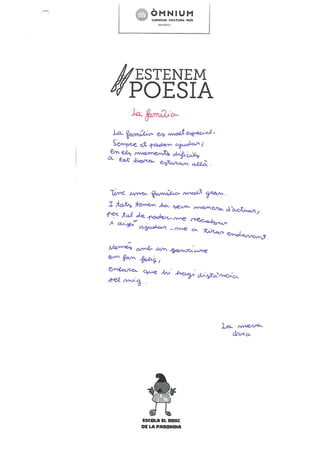 ÒMNIUM
LLENGUA CULTURA PAÍS
ESTENEM
POESIA
La família
La família es molt especial.
Sempre et poden ajudar,
En els moments difícils
a tot hora estaran allà.
Tinc una família molt gran.
I tots tenen la seva manera d'actuar,
per tal de poder-me recolzar
i així ajudar-me a tirar endavant.
Només amb un somriure
em fan feliç,
encara que hi hagi distància
pel mig.
La meva
àvia
ESCOLA EL BOSC
DE LA PABORDIA